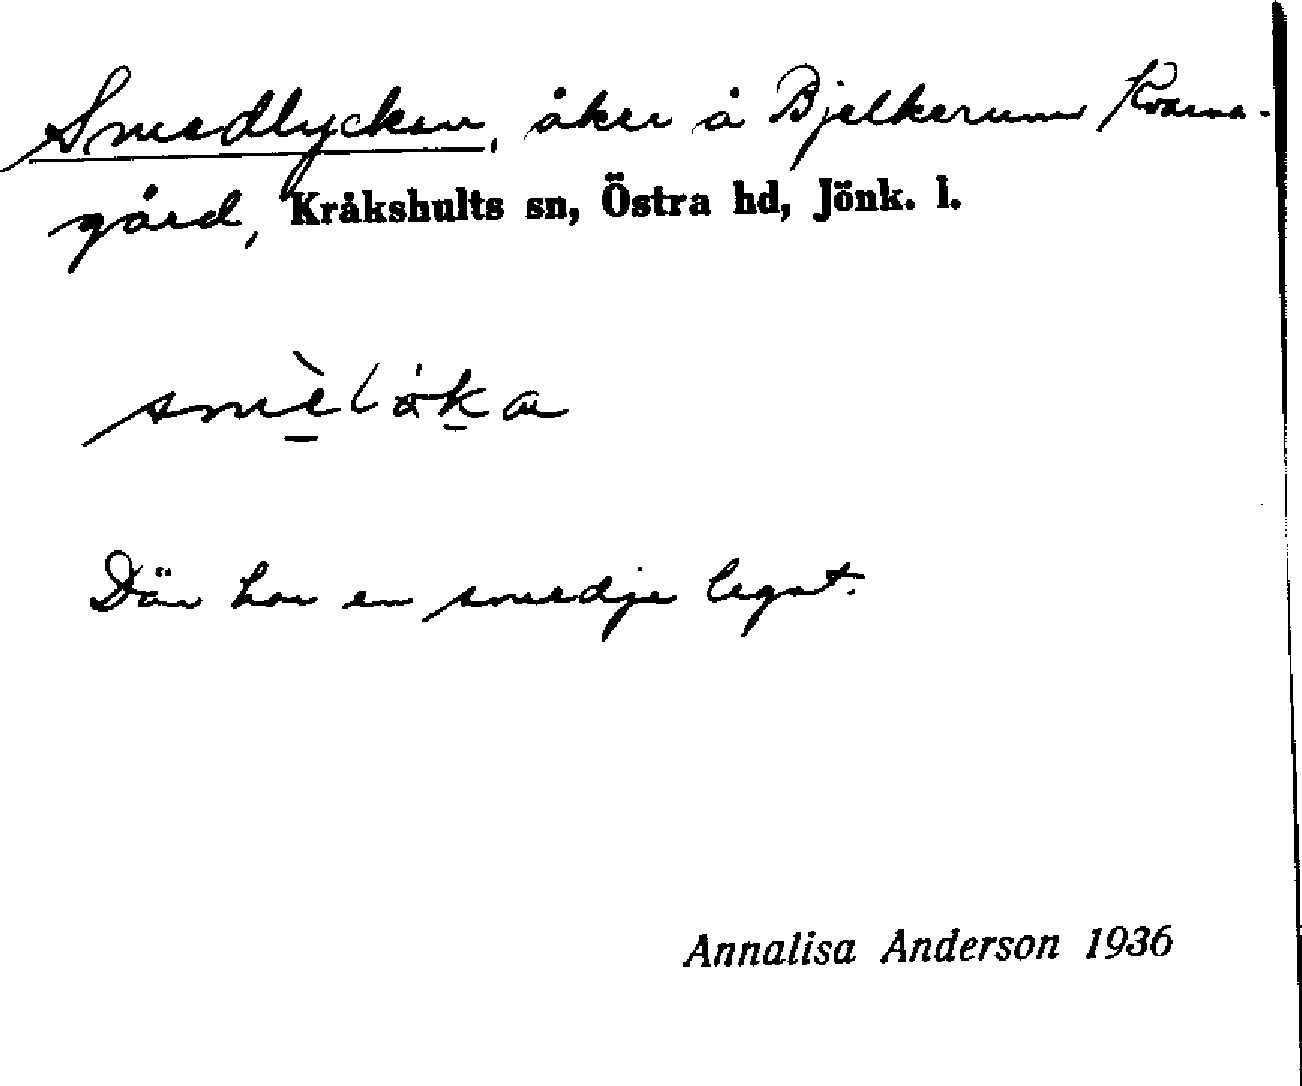 Smedlycken, åker å Bjelkerums Kvarn-
gård, Kråkshults sn, Östra hd, Jönk. l.
smèlöka
Där har en smedje legat.
Annalisa Anderson 1936